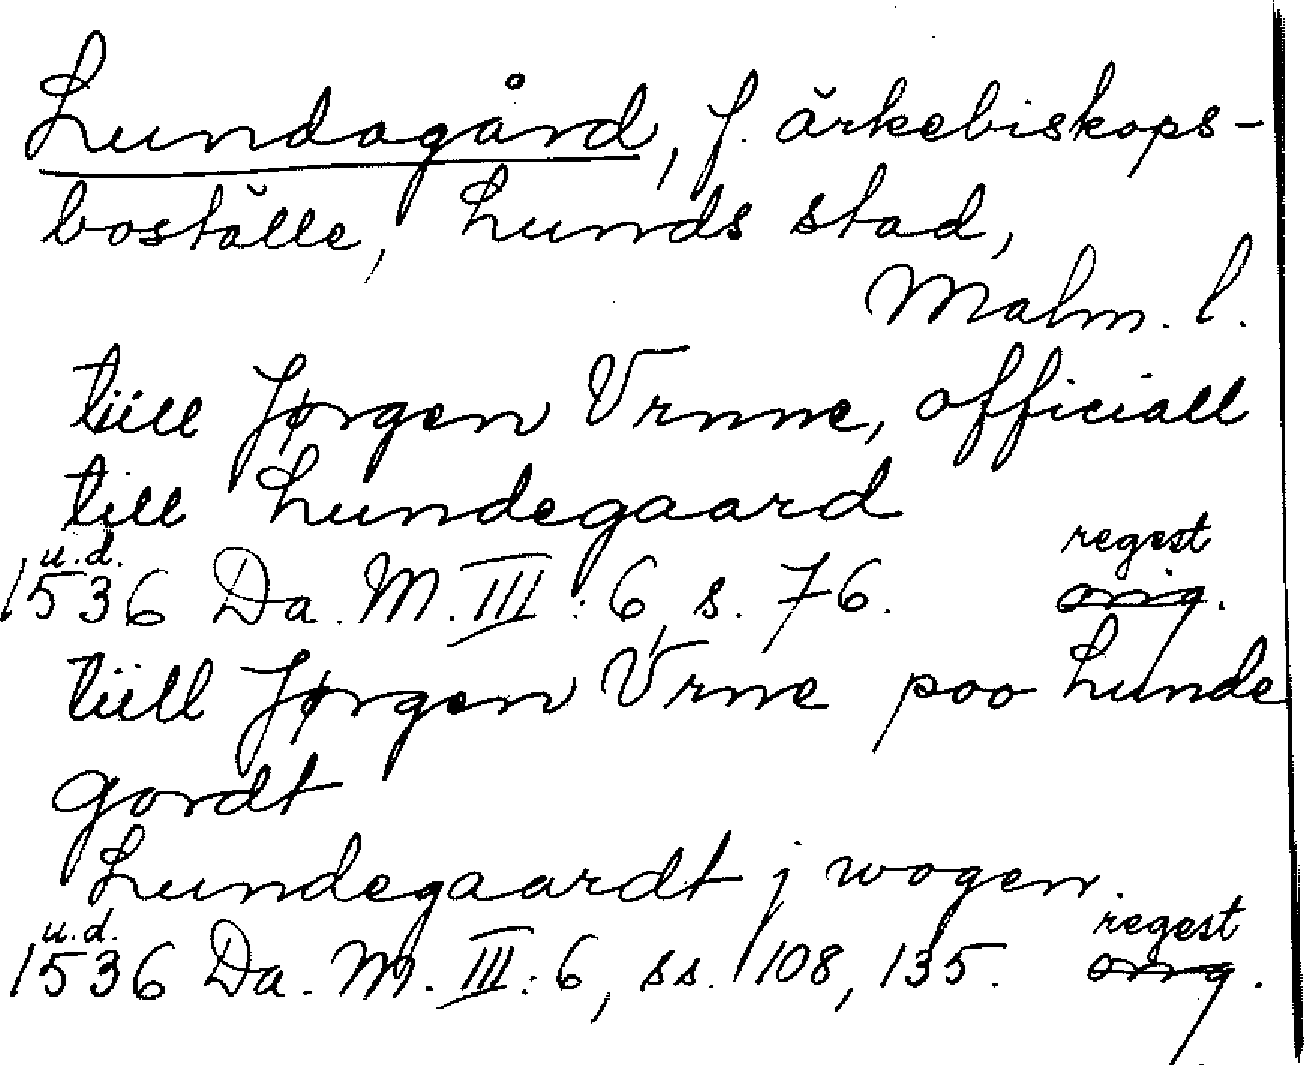 Lundagård, f. ärkebiskops-
boställe, Lunds stad,
Malm. l.
tiill Jørgen Vrnne, officiall
till Lundegaard
u.d. regest
1536 Da. M. III: 6, s. 76. orig.
tiill Jørgen Vrne poo Lunde
gordt
Lundegaardt j wogen.
u.d. regest
1536 Da. M. III: 6, ss. 108, 135. orig.